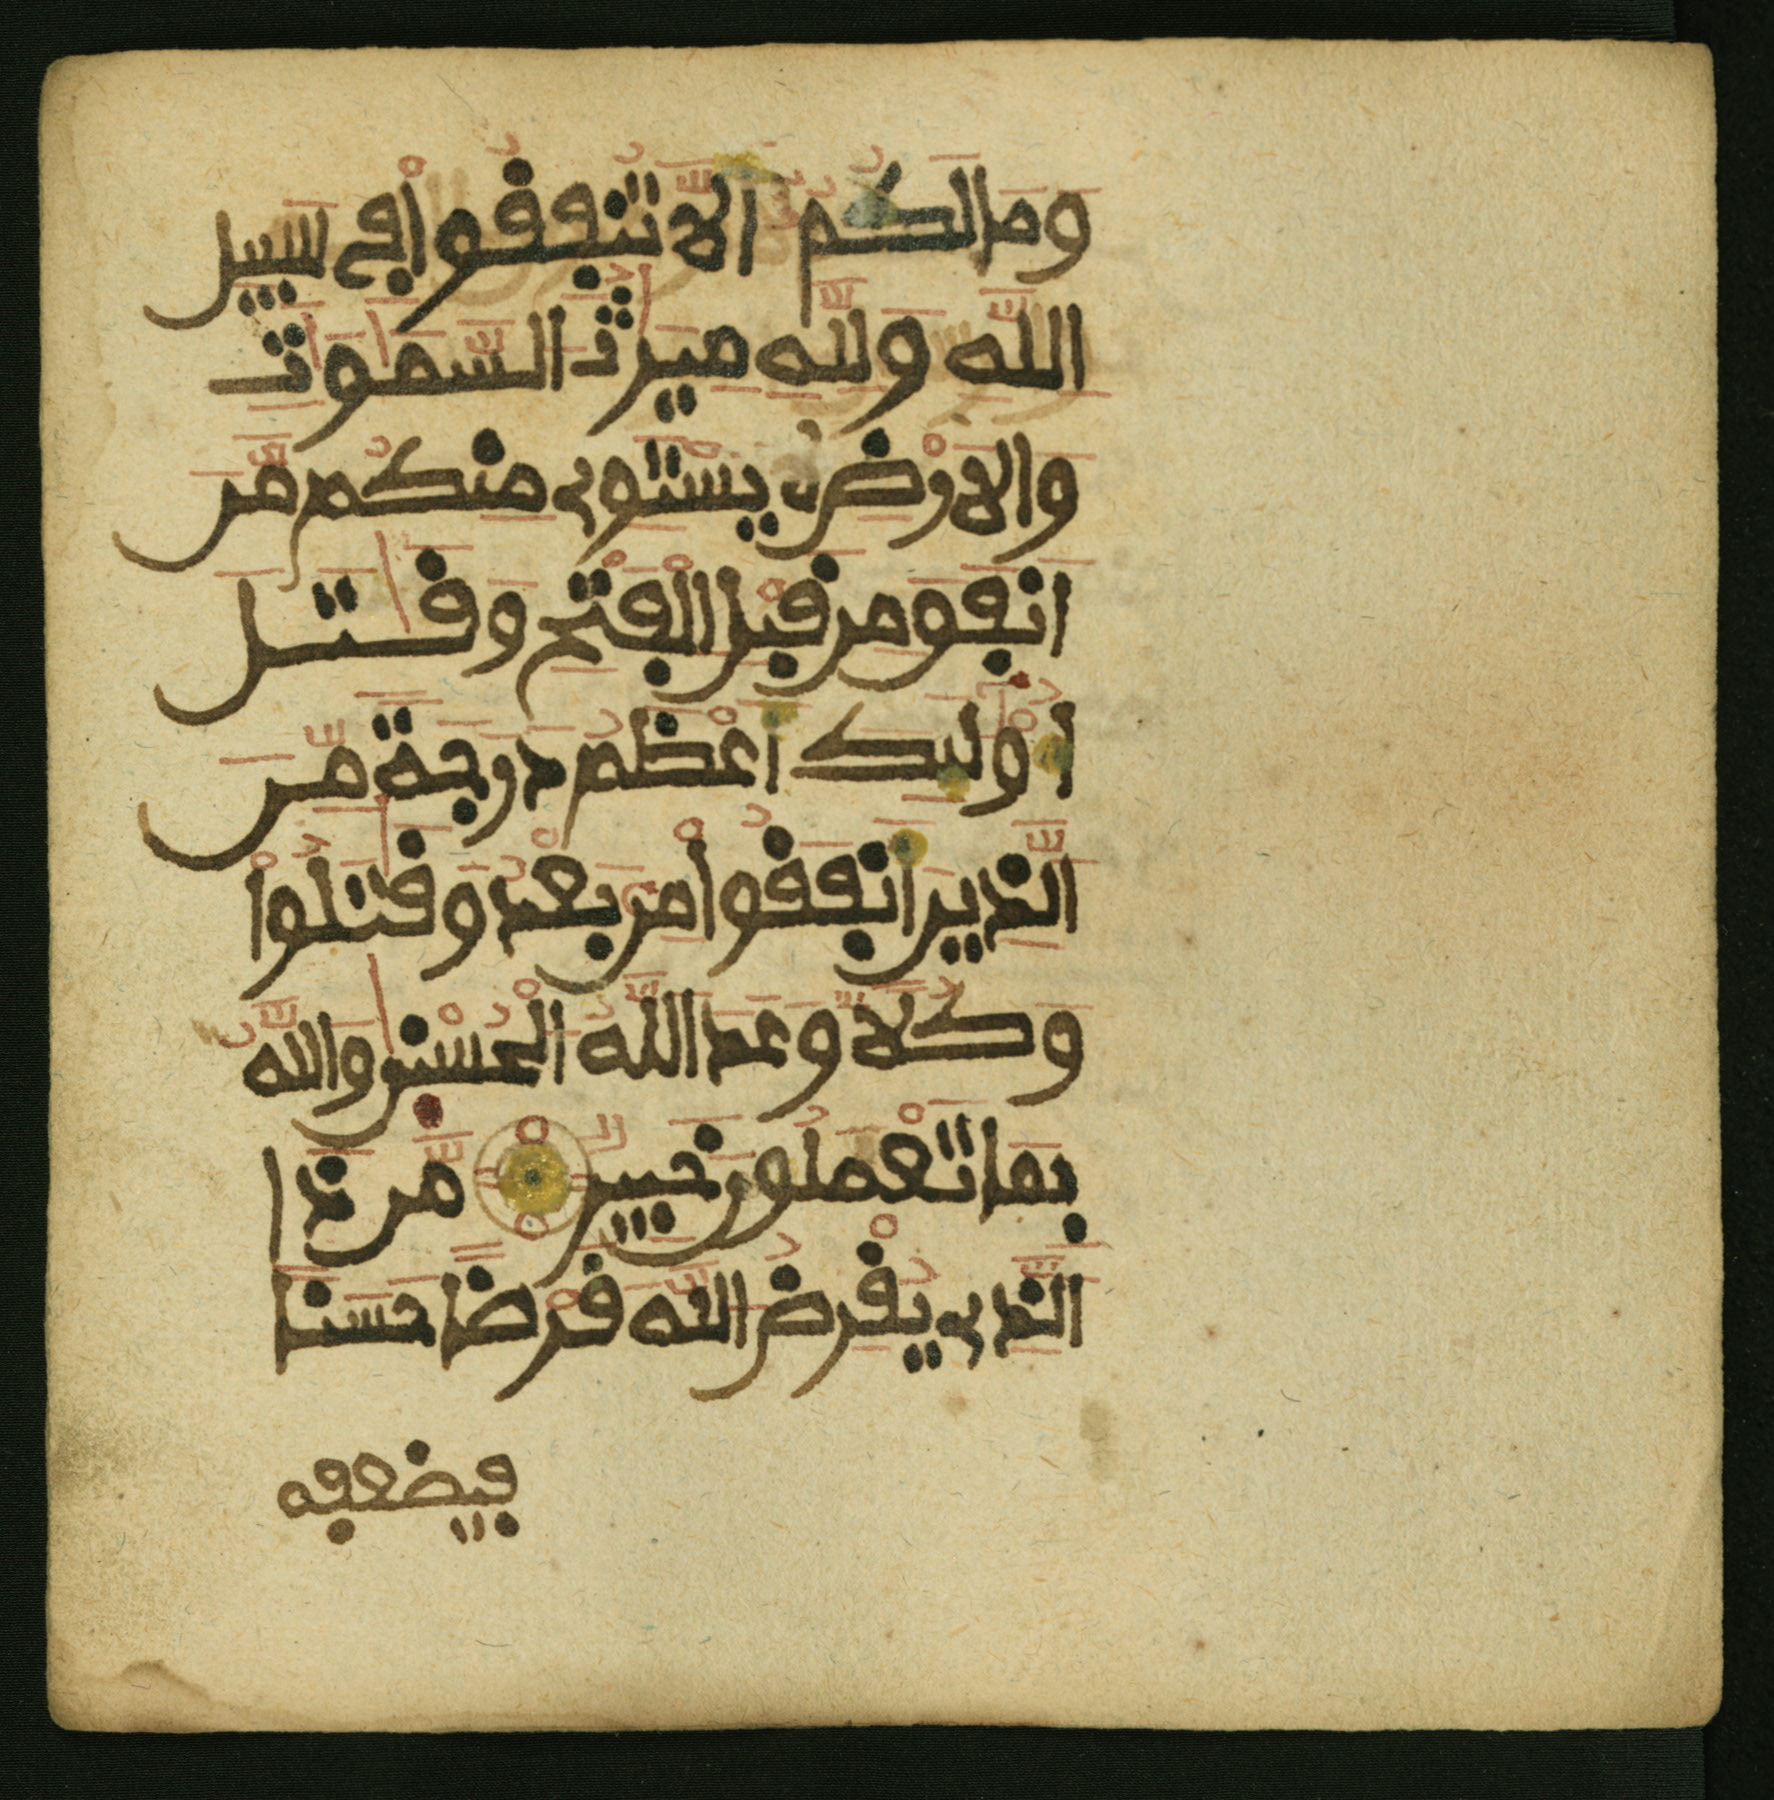 ومالكم الا تنفقوا في سبيل
الله ولله ميرث السموت
والارض يستوي منكم من
انفق من قبل الفتح وقتل
اوليك اعظم درجة من
الذين انفقوا من بعد وقتلوا
وكلا وعد الله الحسنى والله
بما تعملون خبير من ذا
الذي يقرض الله قرضا حسنا
فيضعفه